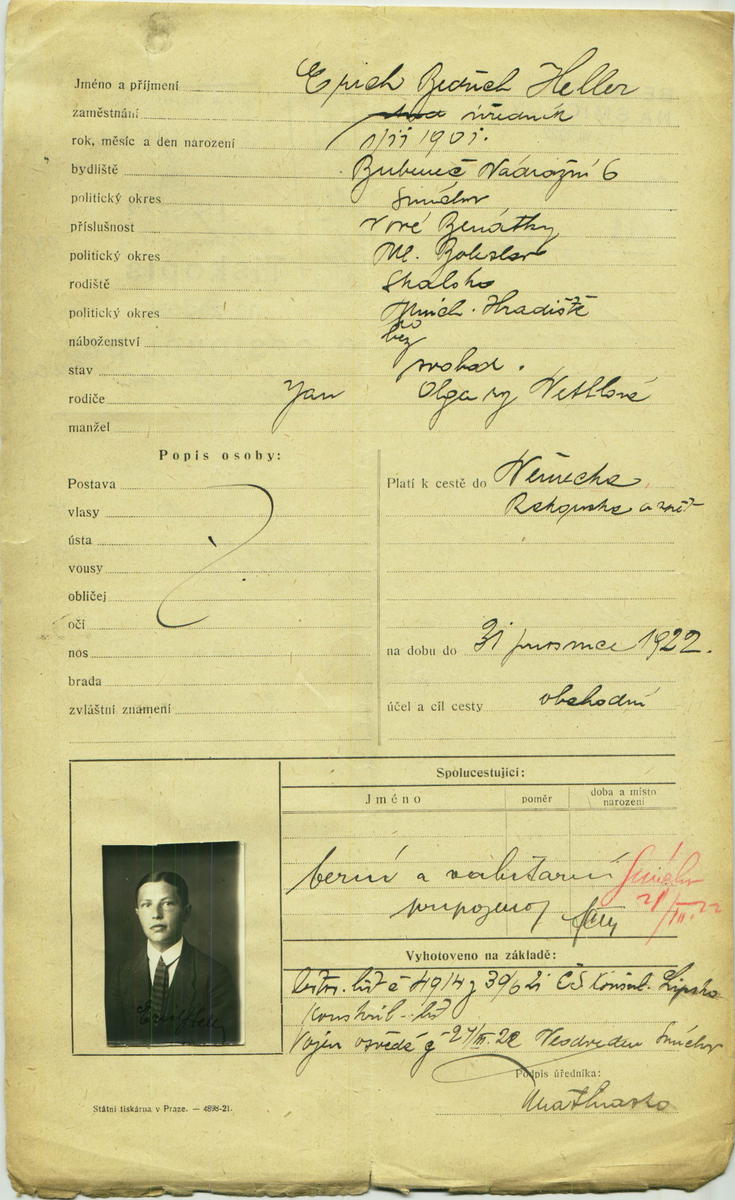 Jméno a příjmení Erich Bedřich Heller
zaměstnání úředník
rok, měsíc a den narození 1/II 1901.
bydliště Bubeneč Nádražní 6
politický okres Smíchov
příslušnost Nové Benátky
politický okres Ml. Boleslav
rodiště Skalsko
politický okres Mnich. Hradiště
náboženství bez
stav svobod.
rodiče Jan Olga roz
manžel
Popis osoby:
Postava
vlasy
ústa
vousy
obličej
oči
nos
brada
zvláštní znamení
Platí k cestě do Německa
Rakouska a zpět
na dobu do 31 prosince 1922.
účel a cíl cesty obchodní
Spolucestující:
Jméno poměr doba a místo narození
berní a valutární Smíchov
Vyhotoveno na základě:
cestov. list č 4914 z 30/6 21 ČS Konsul. Lipsko
Konskrib. list
Vojen osvědč
Smíchov
Podpis úředníka:
Státní tiskárna v Praze. — 4898-21.